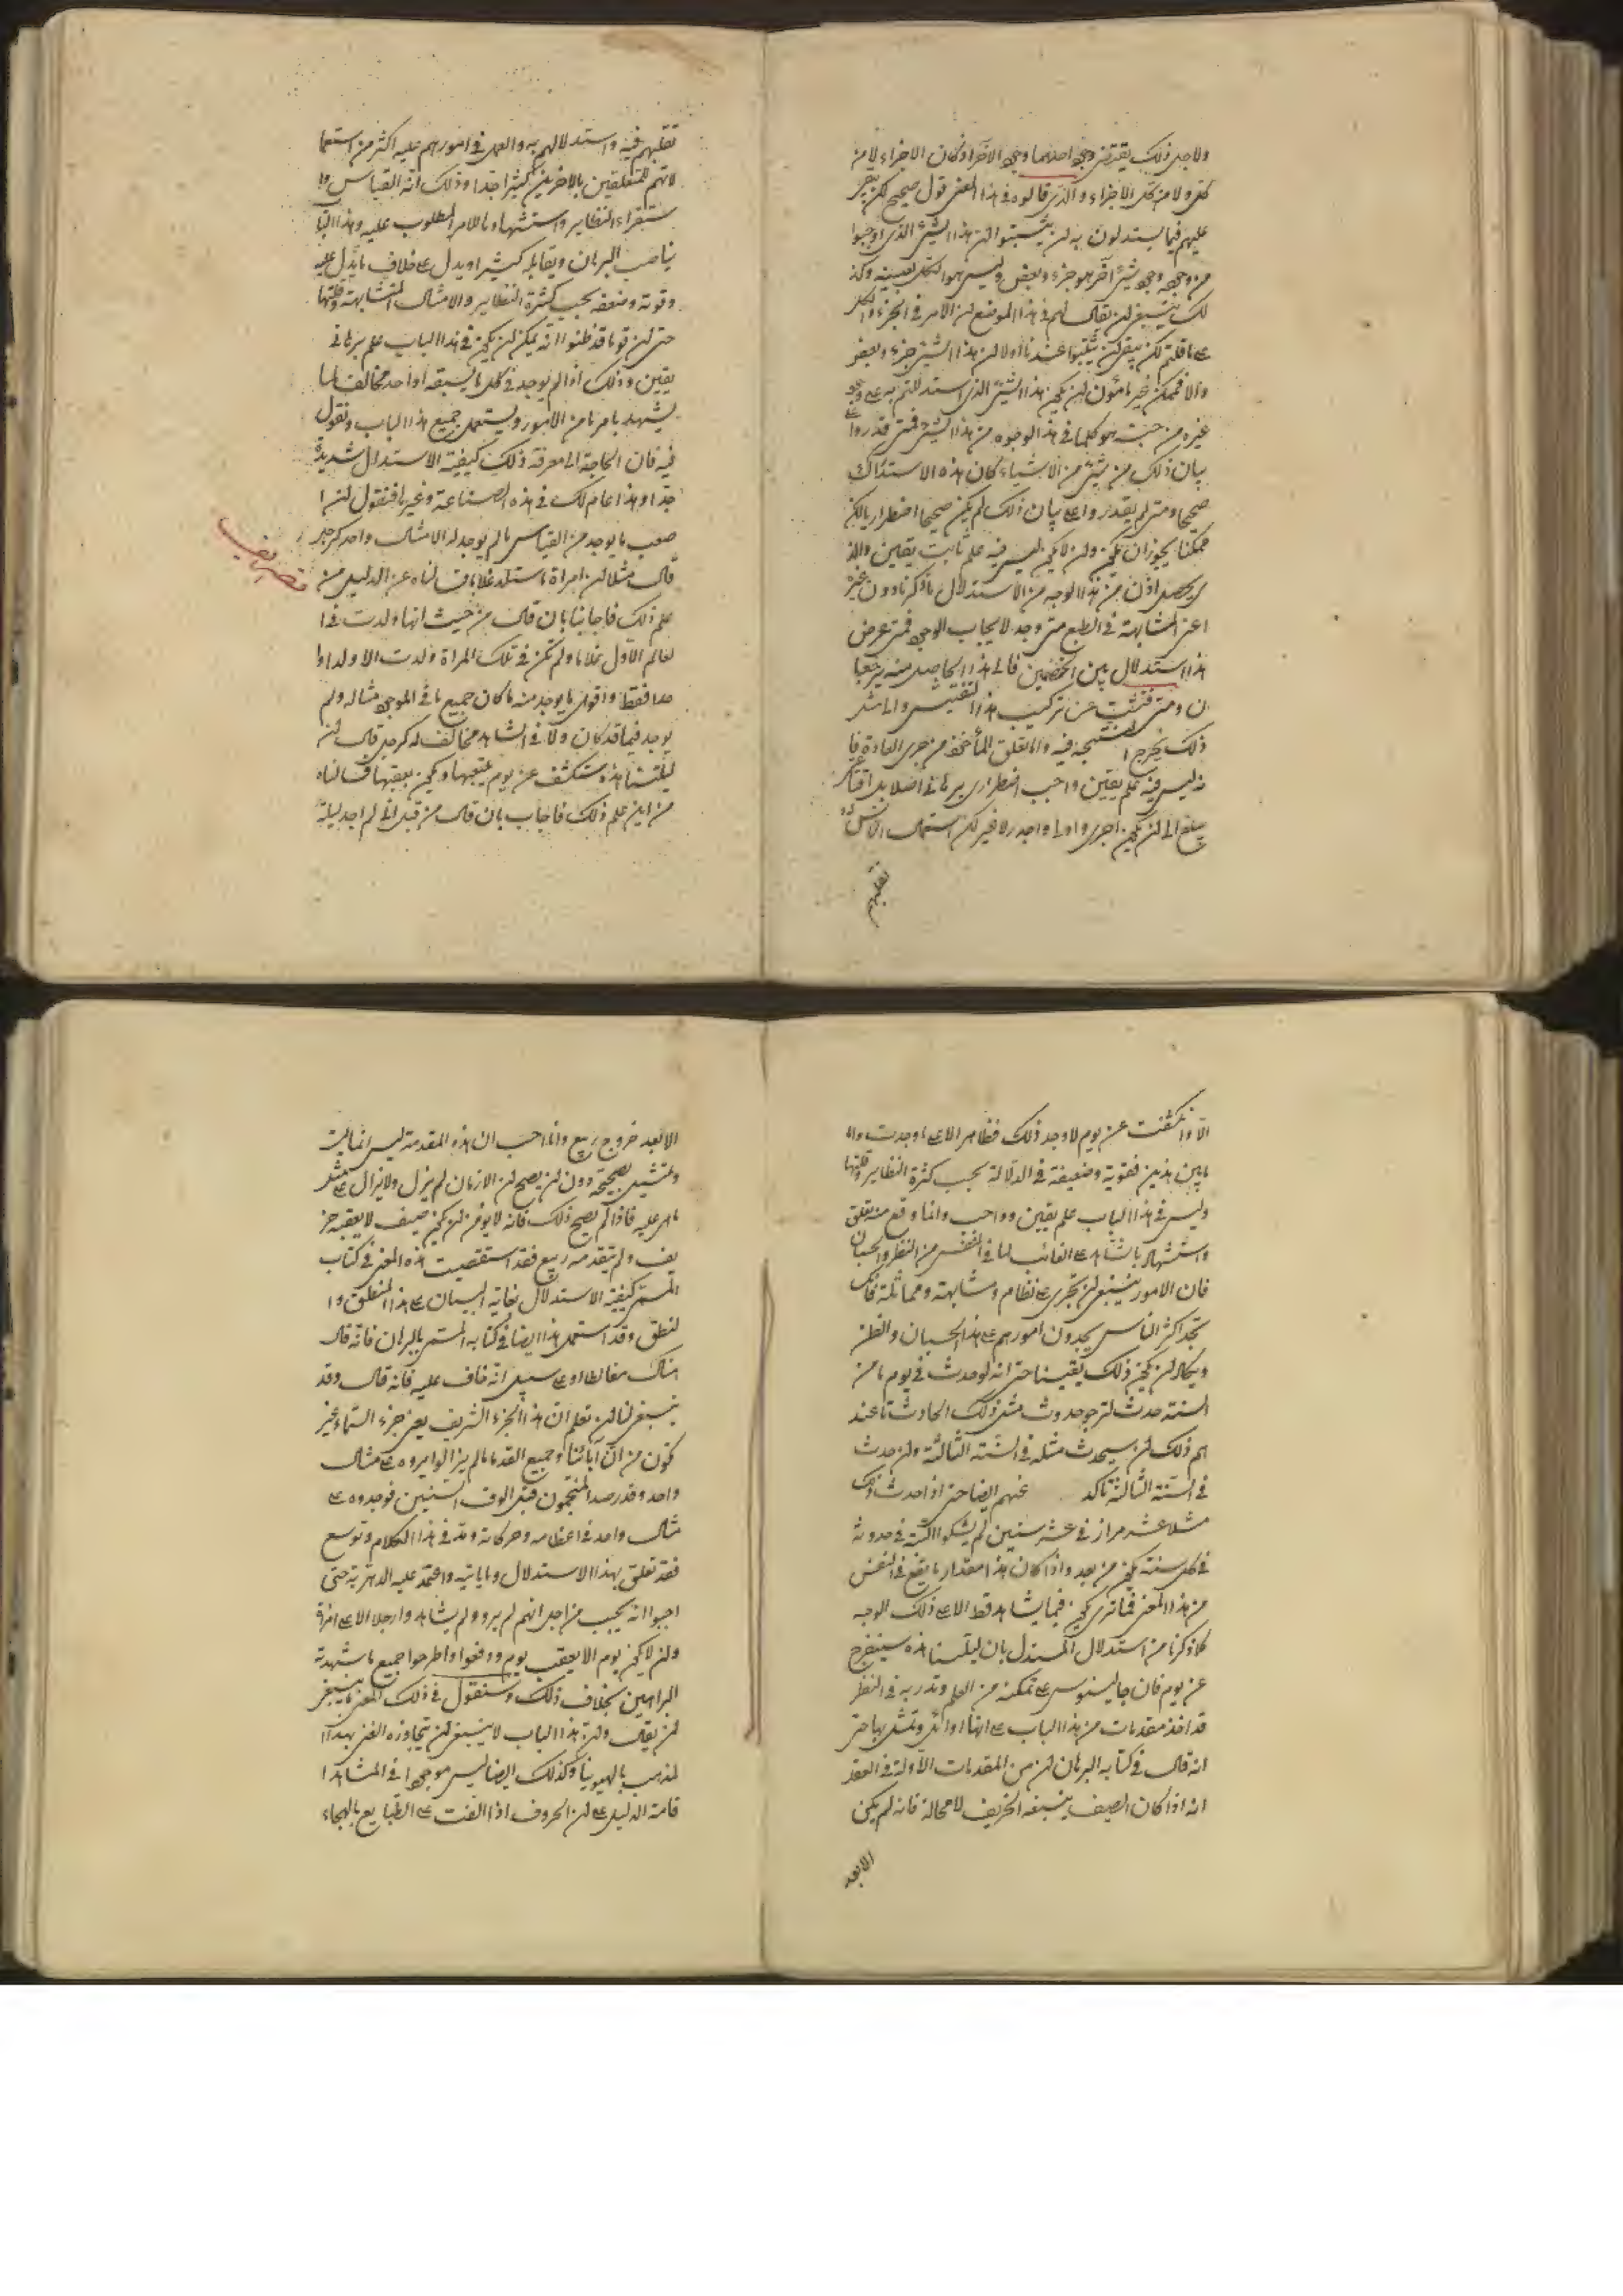 ولاجل ذلك يقتضى وجود احدهما وجود الآخر اذ كان الاجزاء لا من
كل ولا من كل الاجزاء والذى قالوه فى هذا المعنى قول صحيح لكن يجر
عليهم فيما يستدلون به ان يثبتوا ان هذا الشئ الذى اوجبوا
من وجوده وجود شئ آخر هو جزء وبعض وليس هو الكل بعينه وكذ
لك ينبغى ان يقال لهم فى هذا الموضع ان الامر فى الجزء والكل
على ما قلتم لكن بقى ان تثبتوا عندنا اولا ان هذا الشئ جزء وبعض
والا فممكن غير مأمون ان يكون هذا الشئ الذى استدللتم به على وجود
غيره من حيث هو كلما فى هذه الوجوه من هذا الشئ فمتى قدروا على
بيان ذلك من شئ من الاشياء كان هذه الاستدلال
صحيحا ومتى لم يقدروا على بيان ذلك لم يكن صحيحا اضطراريا لكن
ممكنا يجوز ان يكون وان لا يكون ليس فيه علم ثابت يقين والذ
ى يحصل اذن من هذا الوجه من الاستدلال ما ذكرنا دون غيره
اعنى المشابهة فى الطبع متى وجد لا يجاب الوجود فمتى عرض
هذا استدلال بين الخصمين فالى هذا الحاصل منه يرجعا
ن ومتى فتشت عن تركيب هذا التفتيش والى مثل
ذلك يخرج النتيجة فيه واما التعلق المأخوذ من جرى العادة فا
نه ليس فيه علم يقين واجب اضطرارى برهانى اصلا بل اقناعى
يبلغ الى ان يكون احرى واولى واجدر لا غير لكن استعمال الناس له
تقلبهم
تقلبهم فيه واستدلالهم به والعمل فى امورهم عليه اكثر من استعما
لاتهم للمتعلقين بالاخرين كثيرا جدا وذلك انه القياس وا
ستقراء النظاير واستشهادها للامر المطلوب عليه وهذا البا
يناصب البرهان ويقابله كثيرا ويدل على خلاف ما يدل عليه
وقوته وضعفه بحسب كثرة النظاير والامثال المتشابهة وقلتها
حتى ان قوما قد ظنوا انه يمكن ان يكون فى هذا الباب علم برهانى
يقين وذلك اذا لم يوجد فى كل ما يسبقه او احد مخالف لما
يشهد بامر ما من الامور ويستعمل جميع هذا الباب ونقول
فيه فان الحاجة الى معرفة ذلك كيفية الاستدلال شديدة
جدا وهذا عام لك فى هذه الصناعة وغيرها فنقول ان ا
صعب ما يوجد من القياس ما لم يوجد له الا مثال واحد كرجل
قال مثلا ان امراة ما ستلد غلاما فسالناه عن الدليل من
علم ذلك فاجابنا بان قال من حيث انها ولدت فى ا
لعام الاول غلاما ولم تكن فى تلك المراة ولدت الا ولدا وا
حدا فقط واقوى ما يوجد منه ما كان جميع ما فى الوجود مثاله ولم
يوجد فيما قد كان ولا فى الشاهد مخالف له كرجل قال ان
ليلتنا هذه ستنكشف عن يوم يتبعها ويكون بعقبها فسالناه
من اين علم ذلك فاجاب بان قال من قبل انى لم اجد ليلة
الا وانكشفت عن يوم لا وجد ذلك فظاهر الا على ما وجدت واما
ما بين هذين فقوية وضعيفة فى الدلالة بحسب كثرة النظاير وقلتها
وليس فى هذا الباب علم يقين وواجب وانما وقع منه تعلق
واستشهاد بالشاهد على الغائب لما فى النفس من النظر والحسبان
فان الامور ينبغى ان تجرى على نظام ومشابهة ومماثلة فانك
تجد اكثر الناس يجدون امورهم على هذا الحسبان والظن
ويكاد ان يكون ذلك يقينا حتى انه لو حدث فى يوم ما من
السنة حدث لترجو حدوث مثل ذلك الحادث تا عند
هم ذلك ان سيحدث مثله فى السنة الثالثة وان حدث
فى السنة الثالثة تاكد عندهم ايضا حتى اذا حدث ذلك
مثلا عشر مرار فى عشر سنين لم يشكوا البتة فى حدوثه
فى كل سنة يكون من بعد واذا كان هذا مقدار ما يقع فى النفس
من هذا المعنى فما ترى يكون فيما يشاهد قط الا على ذلك الوجه
كما ذكرنا من استدلال المستدل بان ليلتنا هذه ستنفرج
عن يوم فان جالينوس على تمكنه من العلم وتدربه فى النظر
قد اخذ مقدمات من هذا الباب على انها اوائل وتمثل بها حتى
انه قال فى كتابه البرهان ان من المقدمات الاولة فى العقل
انه اذا كان الصيف يتبعه الخريف لا محالة فانه لم يكن
الا بعد
الا بعد خروج ربيع وانا احسب ان هذه المقدمة ليس انما يثبت
وتتمثل بصحيحة دون ان يصح ان الازمان لم يزل ولا يزال على مثل
ما هى عليه فاذا لم يصح ذلك فانه لا يومن ان يكون صيف لا يعقبه خر
يف ولم يتقدمه ربيع فقد استقصيت هذه المعنى فى كتاب
المسمى كيفية الاستدلال بغاية البيان على هذا المنطلق وا
لنطق وقد استعمل هذا ايضا فى كتابه المسمى بالبرهان فانه قال
هناك مغالطا او على سبيل انه خاف عليه فانه قال وقد
ينبغى لنا ان نعلم ان هذا الجزء الشريف يعنى جزء السماء غير
مكون من ان آبائنا وجميع القدماء ما لم يزالوا يروه على مثال
واحد وقد رصد المنجمون قبل الوف السنين فوجدوه على
مثال واحد فى اعظامه وحركاته ومد فى هذا الكلام وتوسع
فقد تعلق بهذا الاستدلال وما يأتيه واعتمد عليه الدهرية حتى
اجبوا انه يجب من اجل انهم لم يروا ولم يشاهدوا رجلا الا عن امرأة
وان لا يكون يوم الا بعقب يوم ودفعوا واطرحوا جميع ما شهدته
البراهين بخلاف ذلك وسنقول فى ذلك المعنى ما ينبغى
ان يقال وان هذا الباب لا ينبغى ان يتجاوزه الغنى بهذا
لمذهب بالهيونيا وكذلك ايضا ليس موجودا فى المشاهدا
قامة الدليل على ان الحروف اذا الفت على الطبايع بالهجاء